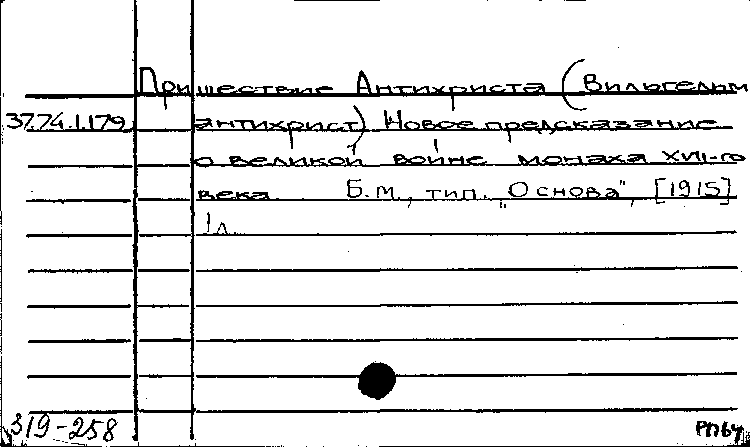 Пришествие Антихриста (Вильгельм
37.74.1.179 антихрист) Новое предсказание
о великой войне монаха XVII-го
века Б.м., тип. "Основа", [1915]
1л.
319-258